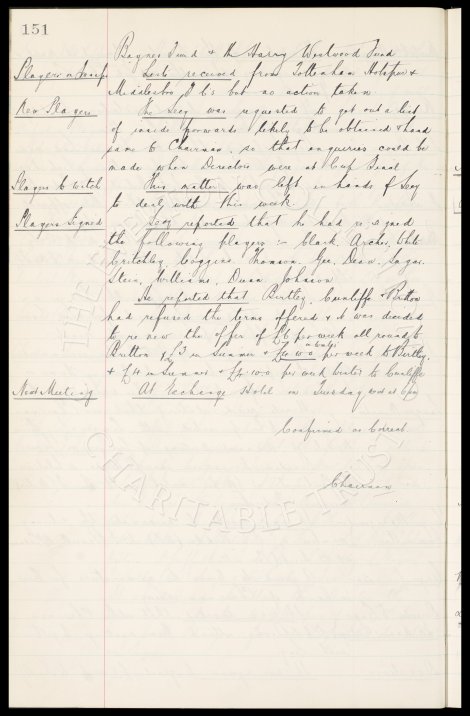 151
Baynes Fund & the Harry Westwood Fund
Players on Transfer
Lists received from Tottenham Hotspur &
Middlesbro F.C's but no action taken
New Players
The Secy was requested to get out a list
of inside forwards likely to be obtained & hand
same to Chairman, so that enquiries could be
made when Directors were at Cup Final
Players to Watch
This matter was left in hands of Secy
to deal with this week
Players Signed
Secy reported that he had re-signed
the following players :- Clark, Archer, White
Critchley, Coggins, Thomson, Gee, Dean, Sagar
Stein, Williams, Dunn, Johnson
He reported that Bentley, Cunliffe & Britton
had refused the terms offered & it was decided
to re new the offer of £6 per week all round to
Britton & £3 in Summer & £4 - 10 - 0 in winter per week to Bentley.
& £4 in Summer & per week Winter to Cunliffe
Next Meeting
At Exchange Hotel on Tuesday next at
Confirmed as Correct
Chairman
THE
CHARITABLE TRUST